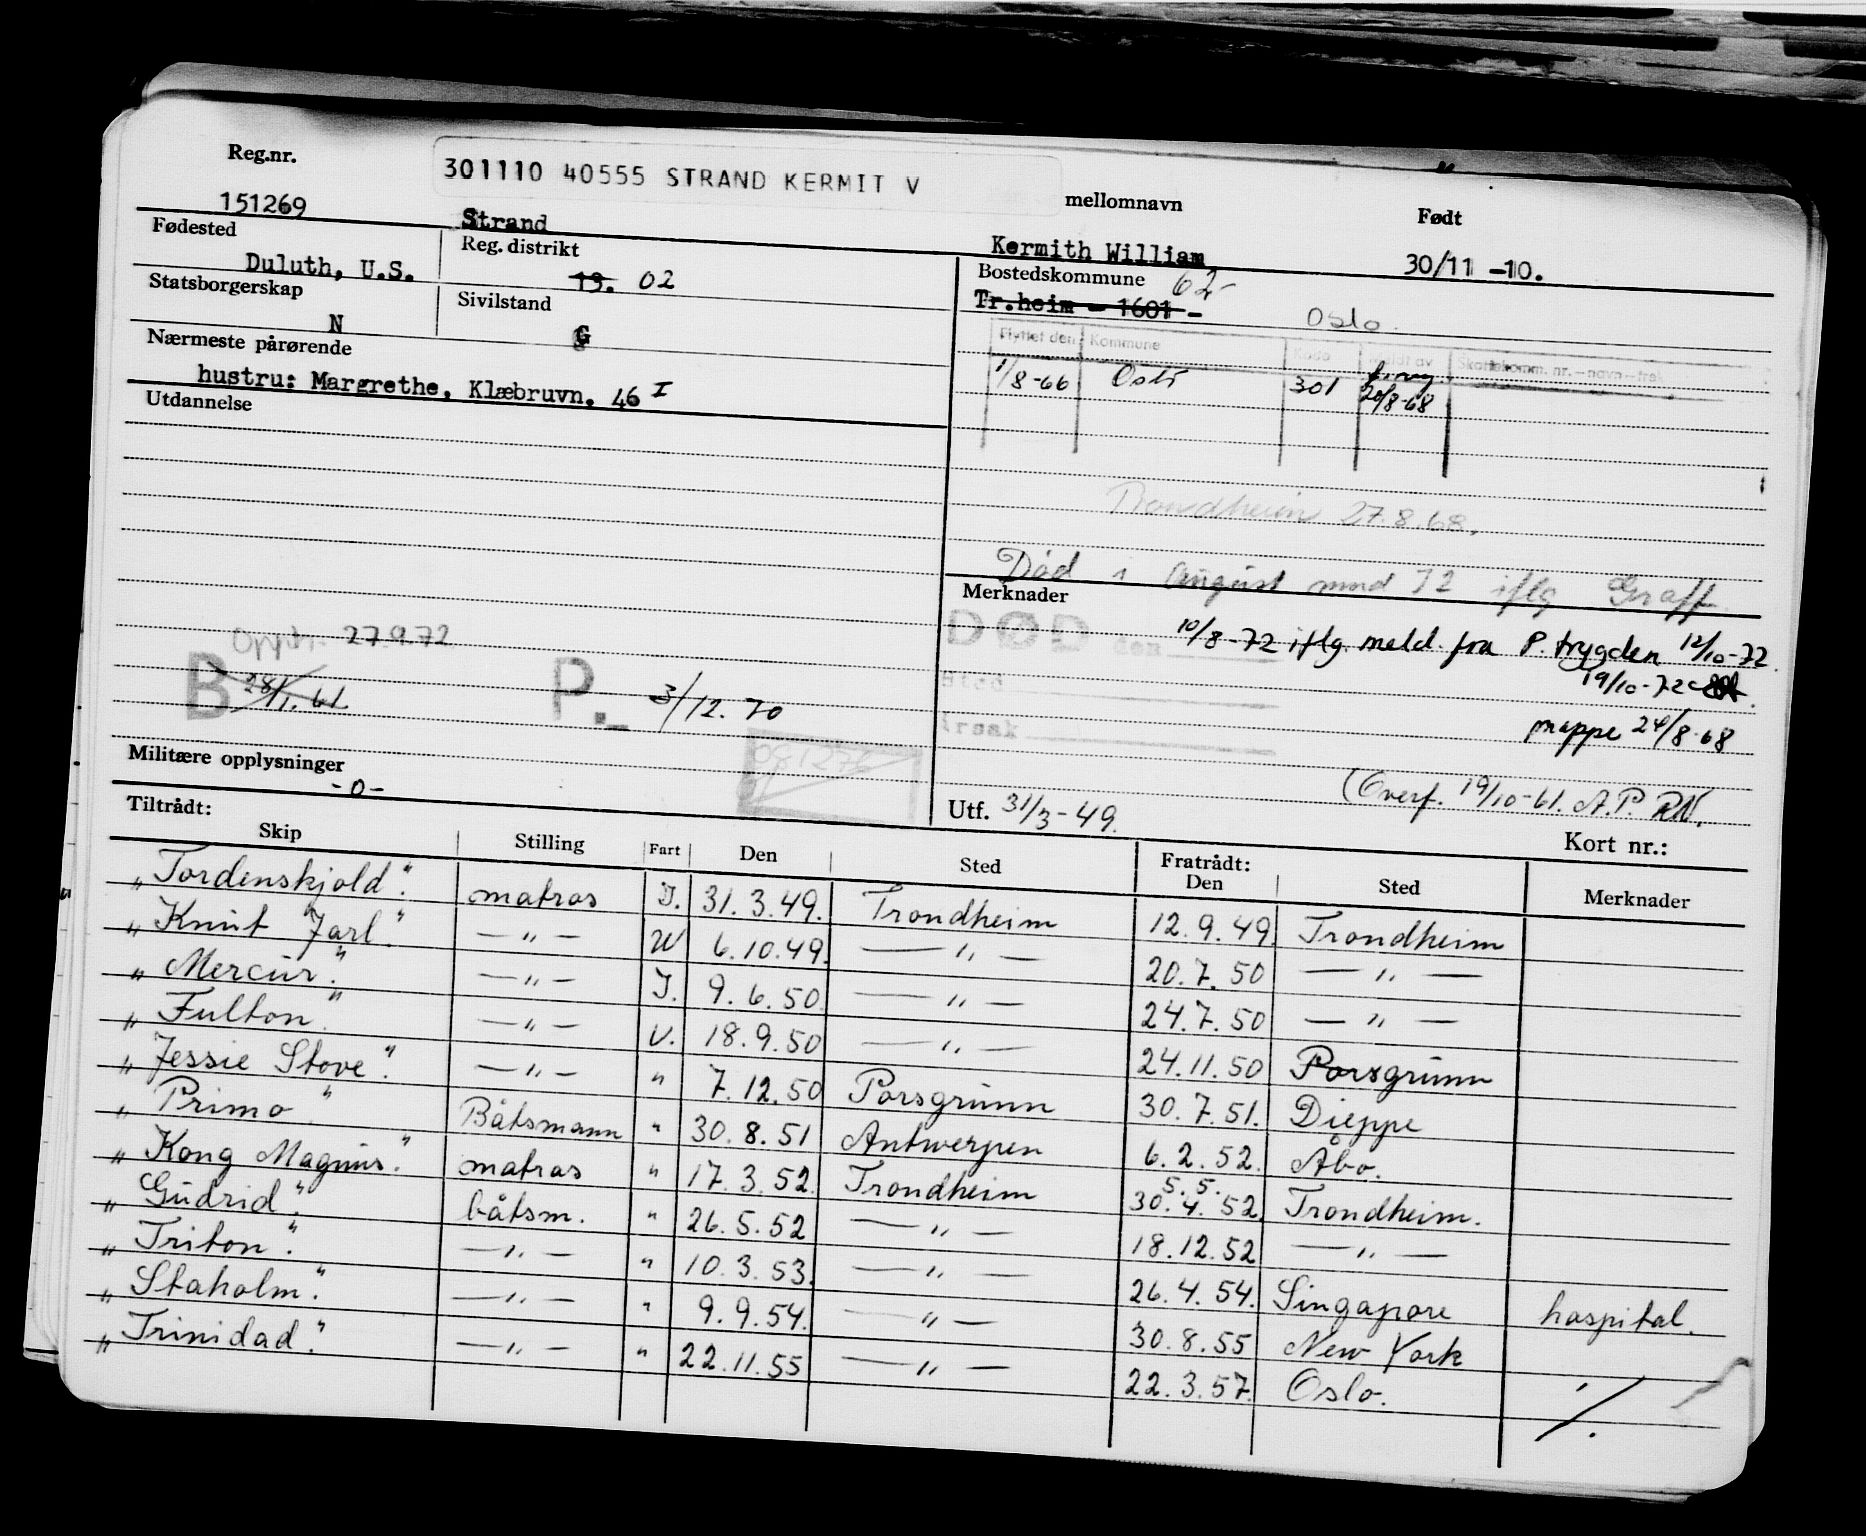 Reg.nr.
301110 40555 STRAND KERMIT V
mellomnavn
Født
151269
Strand
Kermith William
30/11 -10.
Fødested
Reg. distrikt
Bostedskommune 62-
Duluth, U.S.
19. 02
Tr.heim - 1601 - Oslo.
Statsborgerskap
Sivilstand
N
G
Flyttet den Kommune Kode Meldt av Skattekomm. nr.-navn-trek
Nærmeste pårørende
1/8-66 Oslo 301 20/8-68
hustru: Margrethe, Klæbruvn. 46 I
Utdannelse
Trondheim 27.8.68.
Død i august mnd 72 iflg Graff.
Merknader
DØD den
10/8-72 iflg. meld. fra P. trygden 12/10-72.
19/10-72
Sted
Årsak
mappe 24/8-68
Opph. 27.9.72
B 28/1.61
P.- 3/12.70
Militære opplysninger
-0-
(Overf. 19/10-61. A.P. RN.
Utf. 31/3-49.
Kort nr.:
Tiltrådt:
Fratrådt:
Skip Stilling Fart Den Sted Den Sted Merknader
„Tordenskjold". matros I. 31.3.49. Trondheim 12.9.49. Trondheim
„Knut Jarl". —„— U 6.10.49. —„— 20.7.50 —„—
„Mercur". —„— I. 9.6.50. —„— 24.7.50 —„—
„Fulton". —„— U. 18.9.50 —„— 24.11.50 Porsgrunn
„Jessie Stove". —„— „ 7.12.50 Porsgrunn 30.7.51. Dieppe
„Primo" Båtsmann „ 30.8.51 Antwerpen 6.2.52. Åbo.
„Kong Magnus". matros „ 17.3.52. Trondheim 5. 5. 30.4.52. Trondheim.
„Gudrid". båtsm. „ 26.5.52 —„— 18.12.52 —„—
„Triton". —„— „ 10.3.53. —„— 26.4.54. Singapore hospital.
„Staholm". —„— „ 9.9.54. —„— 30.8.55 New York
„Trinidad". —„— „ 22.11.55 —„— 22.3.57. Oslo.